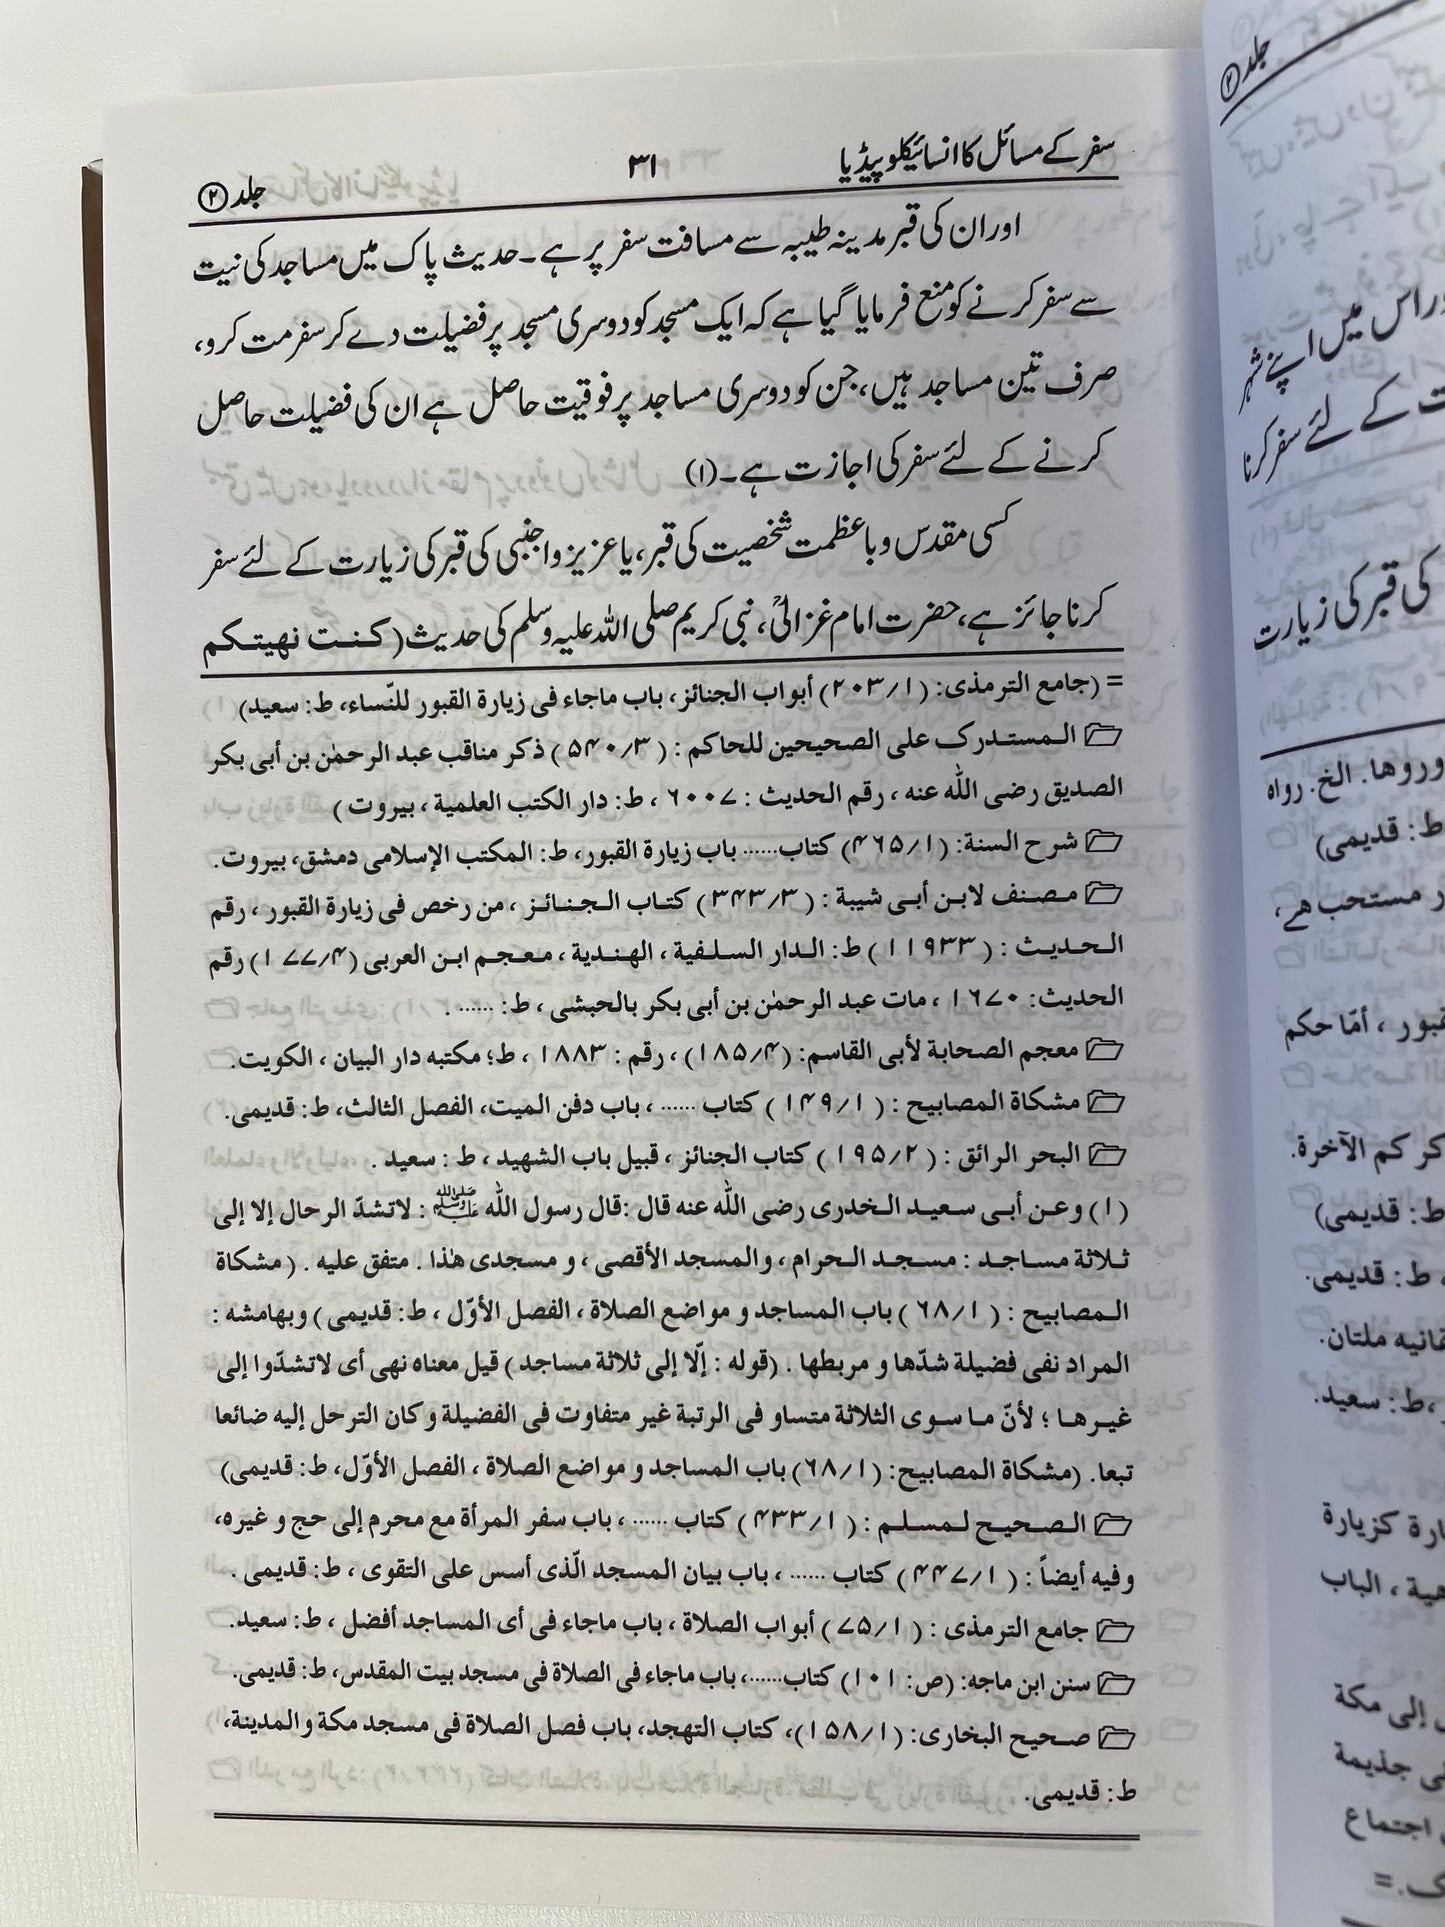 سفر کے مسائل کا انسائیکلوپیڈیا
۳۱
جلد ②
اور ان کی قبر مدینہ طیبہ سے مسافت سفر پر ہے۔ حدیث پاک میں مساجد کی نیت
سے سفر کرنے کو منع فرمایا گیا ہے کہ ایک مسجد کو دوسری مسجد پر فضیلت دے کر سفر مت کرو،
صرف تین مساجد ہیں، جن کو دوسری مساجد پر فوقیت حاصل ہے ان کی فضیلت حاصل
کرنے کے لئے سفر کی اجازت ہے۔(۱)
کسی مقدس و باعظمت شخصیت کی قبر، یا عزیز و اجنبی کی قبر کی زیارت کے لئے سفر
کرنا جائز ہے، حضرت امام غزالیؒ، نبی کریم صلی اللہ علیہ وسلم کی حدیث (کنت نھیتکم
= (جامع الترمذی: (۲۰۳/۱) أبواب الجنائز، باب ماجاء فی زیارة القبور للنّساء، ط: سعید)
المستدرک علی الصحیحین للحاکم : (۵۴۰/۳) ذکر مناقب عبد الرحمٰن بن أبی بکر
الصدیق رضی اللّٰہ عنه ، رقم الحدیث : ۶۰۰۷ ، ط: دار الکتب العلمیة ، بیروت )
شرح السنة: (۴۶۵/۱) کتاب...... باب زیارة القبور، ط: المکتب الإسلامی دمشق، بیروت.
مصنف لابن أبی شیبة : (۳۴۳/۳) کتاب الجنائز ، من رخص فی زیارة القبور ، رقم
الحدیث : (۱۱۹۳۳) ط: الدار السلفیة ، الهندیة ، معجم ابن العربی (۱۷۷/۴) رقم
الحدیث: ۱۶۷۰ ، مات عبد الرحمٰن بن أبی بکر بالحبشی ، ط: ...... .
معجم الصحابة لأبی القاسم: (۱۸۵/۴) ، رقم : ۱۸۸۳ ، ط؛ مکتبه دار البیان ، الکویت.
مشکاة المصابیح : (۱۴۹/۱) کتاب ...... ، باب دفن المیت، الفصل الثالث، ط: قدیمی.
البحر الرائق : (۱۹۵/۲) کتاب الجنائز ، قبیل باب الشهید ، ط : سعید .
(۱) وعن أبی سعید الخدری رضی اللّٰہ عنه قال :قال رسول اللّٰہ ﷺ : لاتشدّ الرحال إلا إلی
ثلاثة مساجد : مسجد الحرام ، والمسجد الأقصی ، و مسجدی هٰذا . متفق علیه . (مشکاة
المصابیح : (۶۸/۱) باب المساجد و مواضع الصلاة ، الفصل الأوّل ، ط: قدیمی) وبهامشه :
المراد نفی فضیلة شدّها و مربطها . (قوله : إلّا إلی ثلاثة مساجد) قیل معناه نهی أی لاتشدّوا إلی
غیرها ؛ لأنّ ما سوی الثلاثة متساو فی الرتبة غیر متفاوت فی الفضیلة و کان الترحل إلیه ضائعا
تبعا. (مشکاة المصابیح: (۶۸/۱) باب المساجد و مواضع الصلاة ، الفصل الأوّل، ط: قدیمی)
الصحیح لمسلم : (۴۳۳/۱) کتاب ...... ، باب سفر المرأة مع محرم إلی حج و غیره،
وفیه أیضاً : (۴۴۷/۱) کتاب ...... ، باب بیان المسجد الّذی أسس علی التقوی ، ط: قدیمی .
جامع الترمذی : (۷۵/۱) أبواب الصلاة ، باب ماجاء فی أی المساجد أفضل ، ط: سعید.
سنن ابن ماجه: (ص: ۱۰۱) کتاب......، باب ماجاء فی الصلاة فی مسجد بیت المقدس، ط: قدیمی.
صحیح البخاری: (۱۵۸/۱)، کتاب التهجد، باب فصل الصلاة فی مسجد مکة والمدینة،
ط: قدیمی.
جلد ②
اور اس میں اپنے شہر
کے لئے سفر کرنا
کی قبر کی زیارت
وروها. الخ. رواه
ط: قدیمی)
مستحب ہے،
، أمّا حکم
کر کم الآخرة.
ط: قدیمی)
، ط: قدیمی.
ملتان.
،ط: سعید.
کزیارة
، الباب
إلی مکة
جذیمة
اجتماع